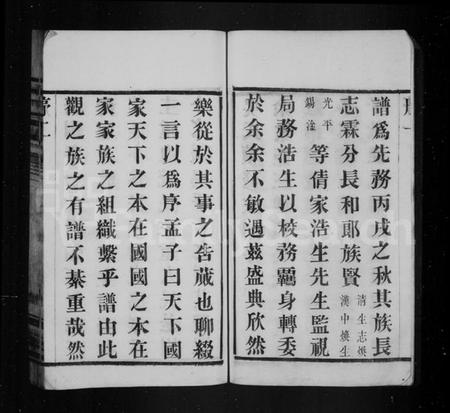 譜爲先務丙戌之秋其族長
志霖分長和郎族賢清生志娛漢中煥生
光平錫淦等倩家浩生先生監視
局務浩生以校務覊身轉委
於余余不敏遇茲盛典欣然
樂從於其事之告蕆也聊綴
一言以爲序孟子曰天下國
家天下之本在國國之本在
家家族之組織繫乎譜由此
觀之族之有譜不綦重哉然
序二